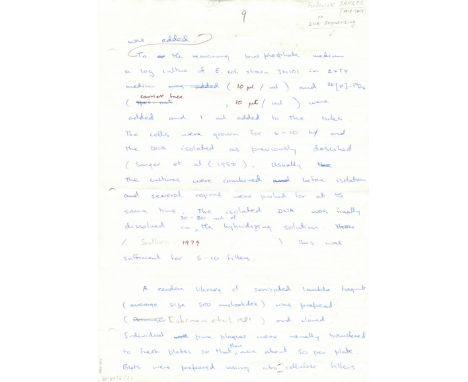 9
Frederick SANGER
DNA Sequencing
was added
To the remaining low phosphate medium
a log culture of E. coli strain JM101 in 2xTY
medium was added (10 µl / ml) and
carrier free
( , 10 / ml) were
added and 1 ml added to the tubes.
The cells were grown for 6-10 h and
the DNA isolated as previously described
(Sanger et al (1980). Usually the
the cultures were combined and before isolation
and several regions were probed for at the
same time. The isolated DNA was finally
dissolved in the hybridizing solution
( Southern 1979 ) this was
sufficient for 5-10 filters.
A random library of sonicated lambda fragments
(average size 500 nucleotides) was prepared
( et al 1981 ) and cloned
Individual pure plaques were usually transferred
to fresh plates so that there were about 50 per plate
Blots were prepared using nitrocellulose filters